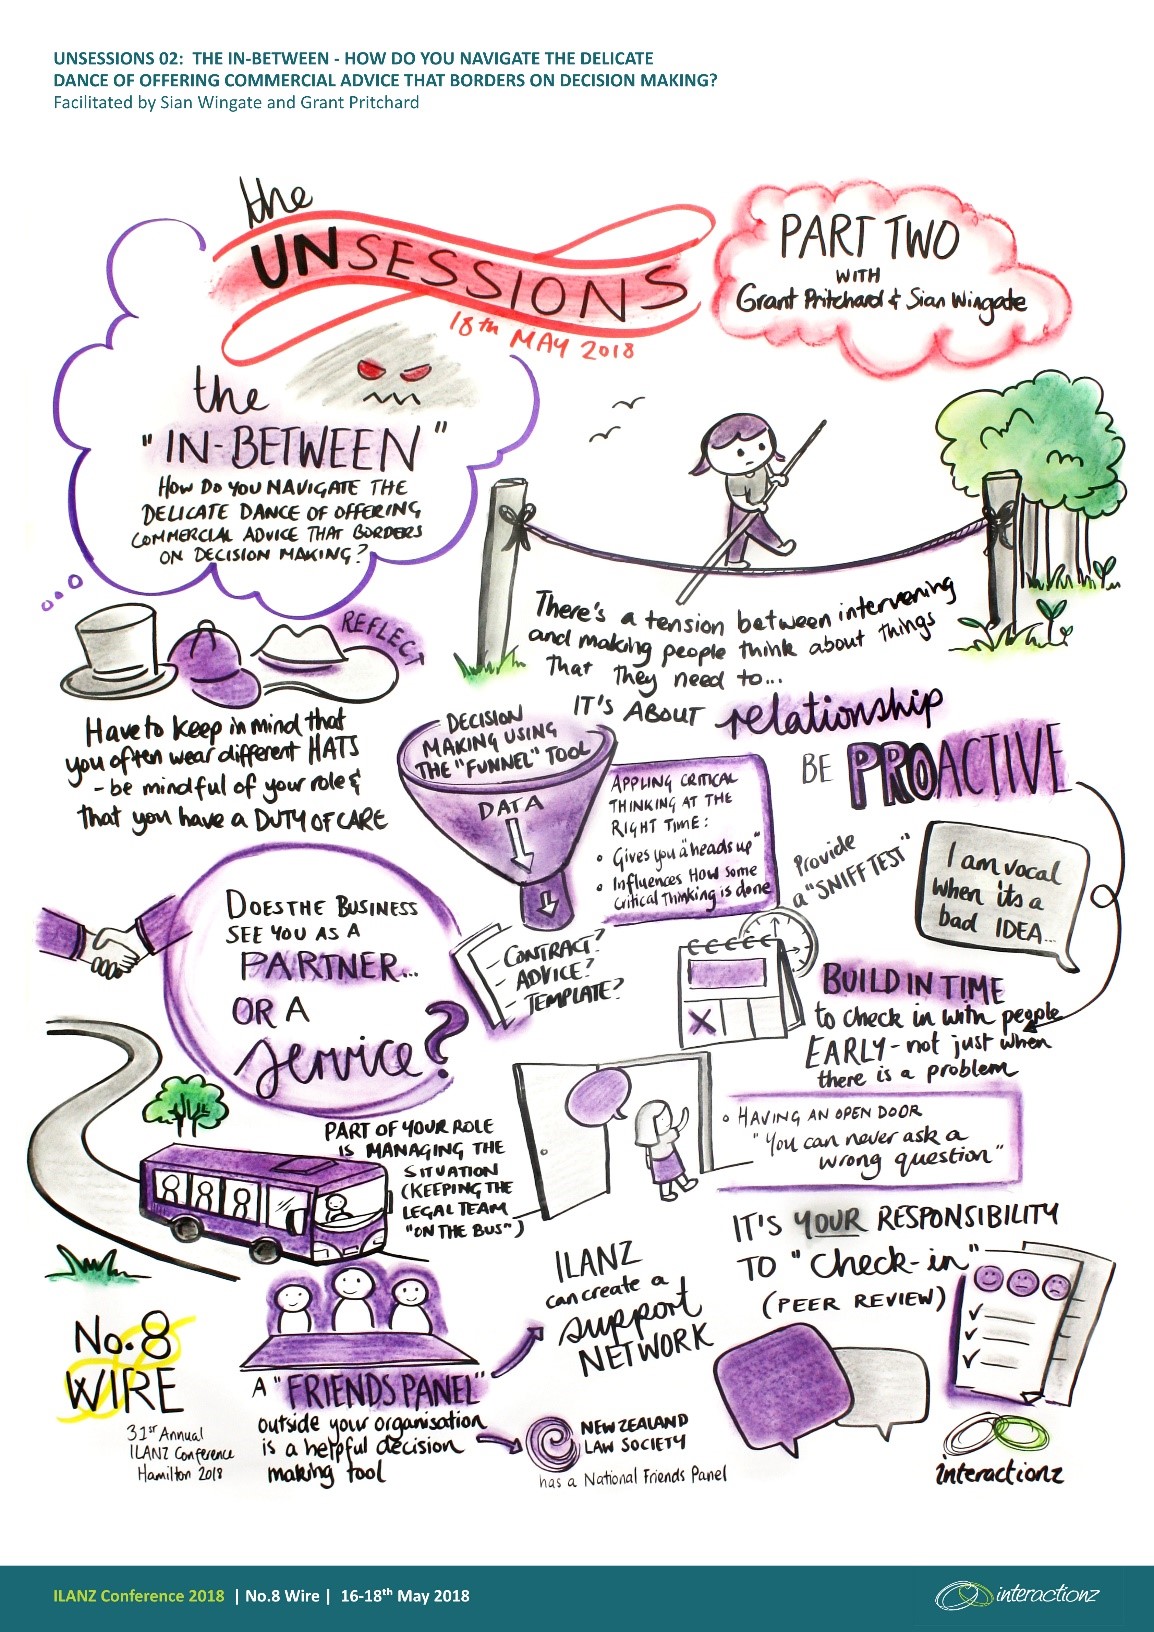 UNSESSIONS 02:  THE IN-BETWEEN - HOW DO YOU NAVIGATE THE DELICATE
DANCE OF OFFERING COMMERCIAL ADVICE THAT BORDERS ON DECISION MAKING?
Facilitated by Sian Wingate and Grant Pritchard
the
UNSESSIONS
18th MAY 2018
PART TWO
WITH
Grant Pritchard & Sian Wingate
the
"IN-BETWEEN"
HOW DO YOU NAVIGATE THE
DELICATE DANCE OF OFFERING
COMMERCIAL ADVICE THAT BORDERS
ON DECISION MAKING?
There's a tension between intervening
and making people think about things
that they need to...
REFLECT
Have to keep in mind that
you often wear different HATS
- be mindful of your role &
that you have a DUTY OF CARE
IT'S ABOUT relationship
BE PROACTIVE
DECISION
MAKING USING
THE "FUNNEL" TOOL
DATA
APPLING CRITICAL
THINKING AT THE
RIGHT TIME:
• Gives you a "heads up"
• Influences How some
Critical Thinking is done
Provide
a "SNIFF TEST"
I am vocal
when it's a
bad IDEA...
DOES THE BUSINESS
SEE YOU AS A
PARTNER...
OR A
service?
- CONTRACT?
- ADVICE?
- TEMPLATE?
BUILD IN TIME
to check in with people
EARLY - not just when
there is a problem
PART OF YOUR ROLE
IS MANAGING THE
SITUATION
(KEEPING THE
LEGAL TEAM
"ON THE BUS")
• HAVING AN OPEN DOOR
"You can never ask a
wrong question"
IT'S YOUR RESPONSIBILITY
TO "Check-in"
(PEER REVIEW)
ILANZ
can create a
support
NETWORK
No.8
WIRE
31st Annual
ILANZ Conference
Hamilton 2018
A "FRIENDS PANEL"
outside your organisation
is a helpful decision
making tool
NEW ZEALAND
LAW SOCIETY
has a National Friends Panel
interactionz
ILANZ Conference 2018 | No.8 Wire | 16-18th May 2018
interactionz